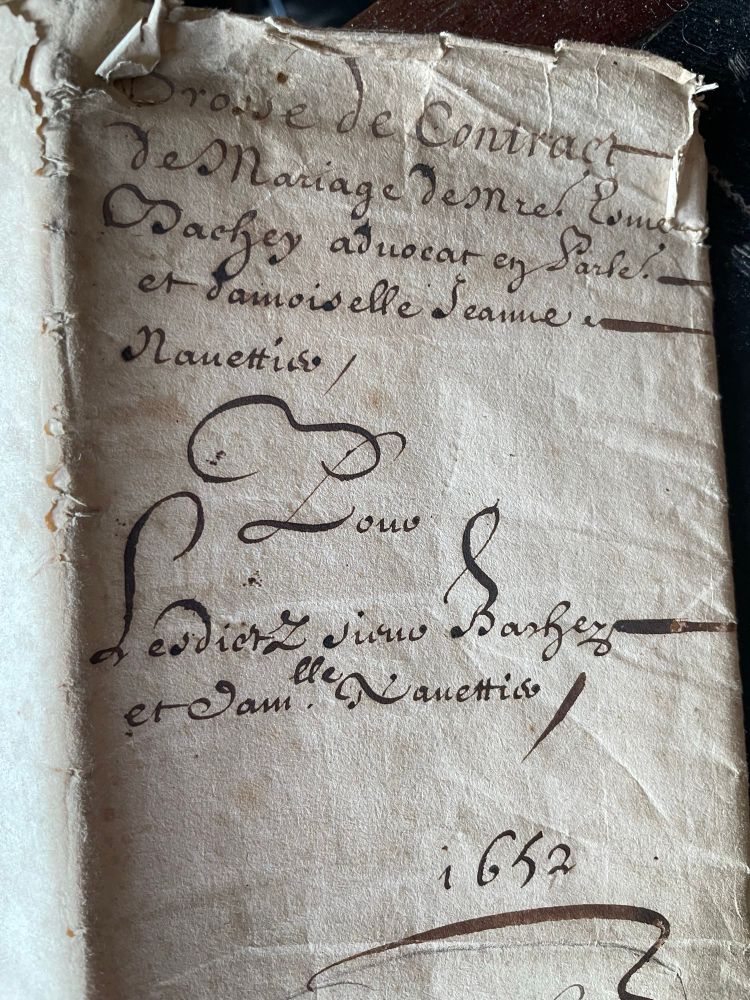 Grosse de Contract
de Mariage de Mre. Esme
Bachey advocat en Parle.
et damoiselle Jeanne
Navettier
Pour
Lesdictz sieur Bachey
et Dam.lle Navettier
1652